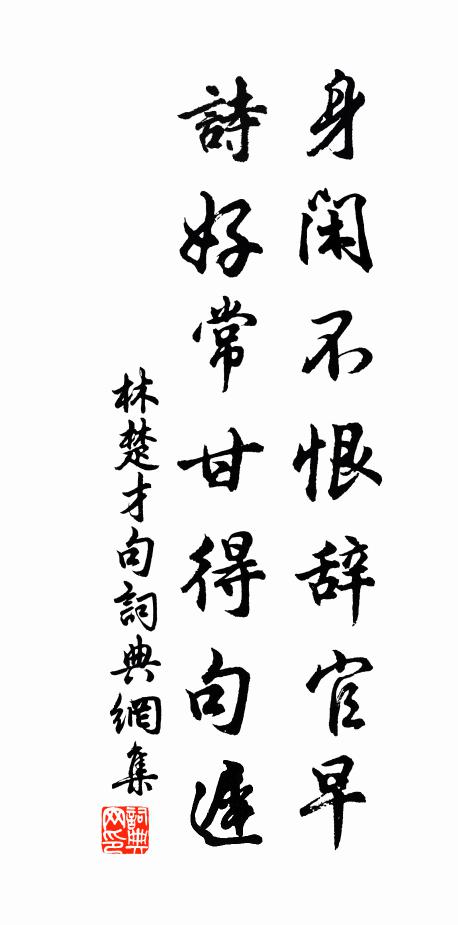 身閑不恨辞官早
詩好常甘得句遲
林楚才句詞典網集
詞典網印